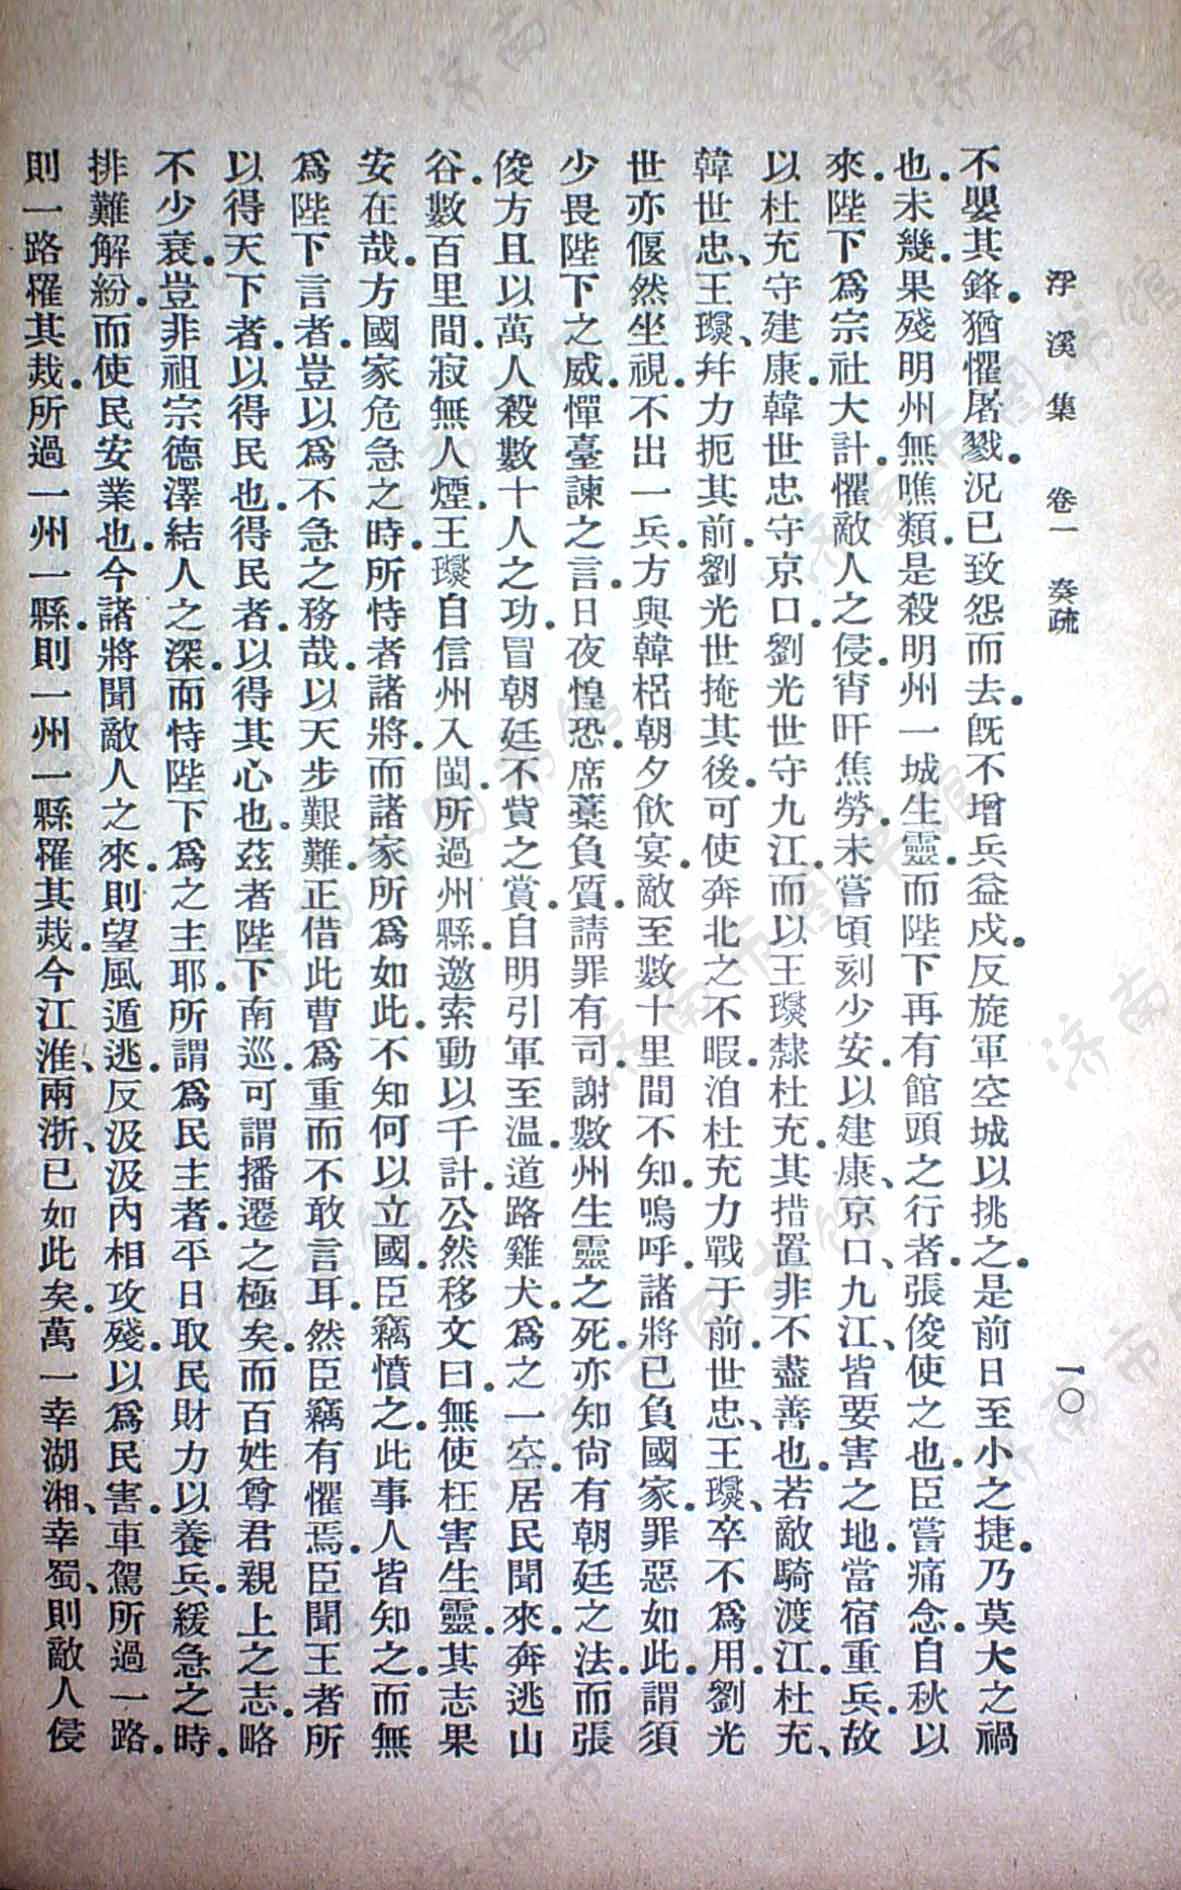 浮溪集　卷一　奏疏　一〇
不嬰其鋒。猶懼屠戮。況已致怨而去。既不增兵益戍。反旋軍空城以挑之。是前日至小之捷。乃莫大之禍
也。未幾。果殘明州無噍類。是殺明州一城生靈。而陛下再有館頭之行者。張俊使之也。臣嘗痛念。自秋以
來。陛下爲宗社大計。懼敵人之侵。宵旰焦勞。未嘗頃刻少安。以建康、京口、九江、皆要害之地。當宿重兵。故
以杜充守建康。韓世忠守京口。劉光世守九江。而以王𤫉隸杜充。其措置非不盡善也。若敵騎渡江。杜充、
韓世忠、王𤫉、幷力扼其前。劉光世掩其後。可使奔北之不暇。洎杜充力戰于前。世忠、王𤫉、卒不爲用。劉光
世亦偃然坐視。不出一兵。方與韓梠朝夕飮宴。敵至數十里間不知。嗚呼。諸將已負國家。罪惡如此。謂須
少畏陛下之威。憚臺諫之言。日夜惶恐。席藁負質。請罪有司。謝數州生靈之死。亦知尙有朝廷之法。而張
俊方且以萬人殺數十人之功。冒朝廷不貲之賞。自明引軍至温。道路雞犬。爲之一空。居民聞來。奔逃山
谷。數百里間。寂無人煙。王𤫉自信州入閩。所過州縣。邀索動以千計。公然移文曰。無使枉害生靈。其志果
安在哉。方國家危急之時。所恃者諸將。而諸家所爲如此。不知何以立國。臣竊憤之。此事人皆知之。而無
爲陛下言者。豈以爲不急之務哉。以天步艱難。正借此曹爲重而不敢言耳。然臣竊有懼焉。臣聞王者所
以得天下者。以得民也。得民者。以得其心也。茲者陛下南巡。可謂播遷之極矣。而百姓尊君親上之志。略
不少衰。豈非祖宗德澤結人之深。而恃陛下爲之主耶。所謂爲民主者。平日取民財力以養兵。緩急之時。
排難解紛。而使民安業也。今諸將聞敵人之來。則望風遁逃。反汲汲內相攻殘。以爲民害。車駕所過一路。
則一路罹其烖。所過一州一縣。則一州一縣罹其烖。今江淮、兩浙、已如此矣。萬一幸湖湘、幸蜀、則敵人侵